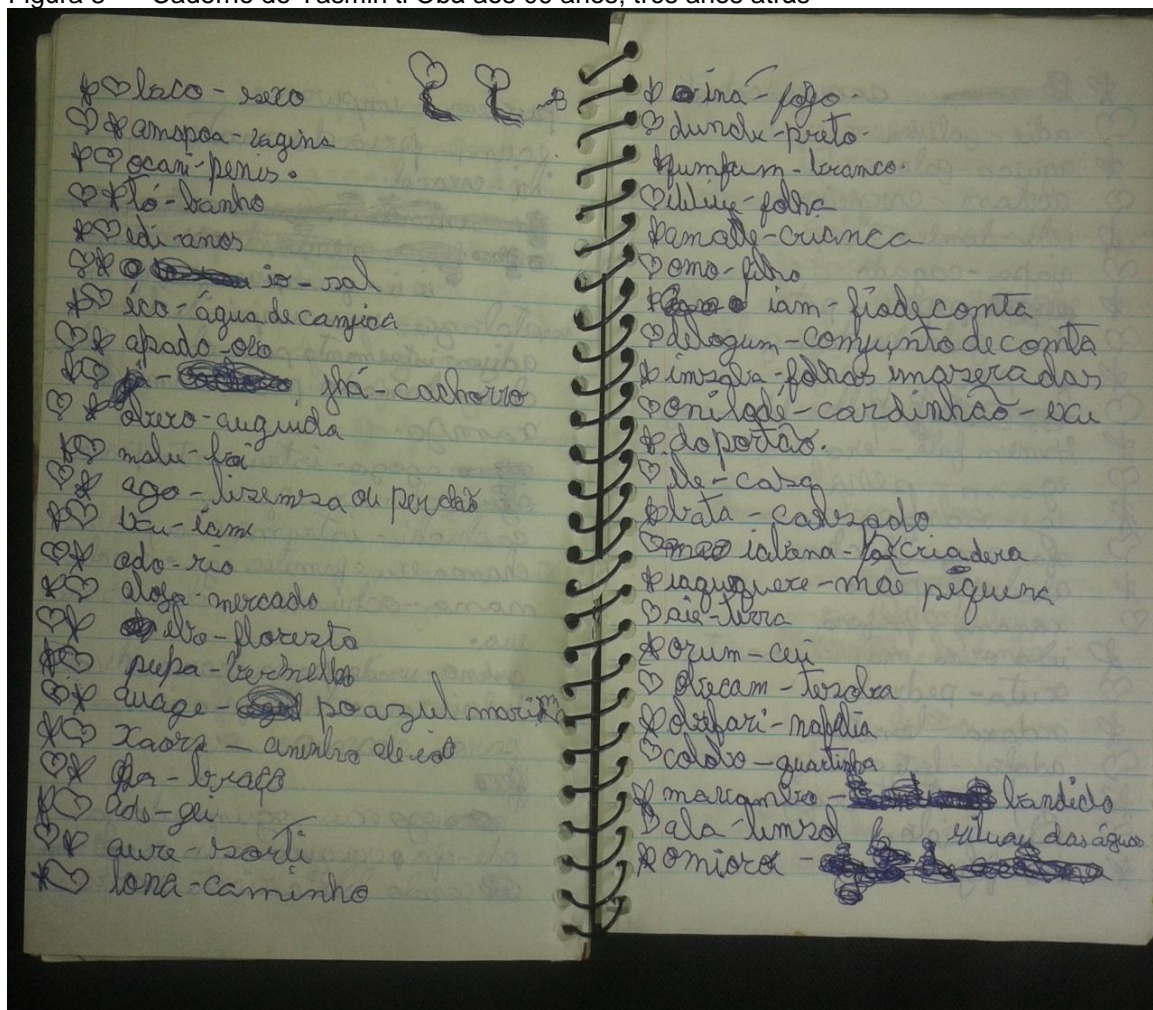 Figura 3 – Caderno de Yasmin ti Obá aos 09 anos, três anos atrás
laco - sexo
amapoa - vagina
ocani - penis.
tó - banho
edi - anos
io - sal
éco - água de canjica
apado - ovo
jhá - cachorro
obero - auguida
malu - boi
ago - lisemsa ou perdão
ixu - iami
odo - rio
aloja - mercado
ebo - floresta
pupa - bermelho
uage - poazul marinho
xaorô
apa - braço
ado - gei
aure - sorti
lona - caminho
iná - fogo.
dundu - preto.
fumfum - branco.
folha
amade - criança
omo - filho
iam - fiode comta
delogum - comjunto de comta
imsaba - folhas maseradas
onilodé - cardinhão - exu
do portão.
ile - casa
bata - calsado
iabana - criadera
iaququere - mãe pequena
aiê - terra
orum - ceu
obecam - tesolra
orifari - nafitlia
colobo - quartinha
margambo - bandido
ala - limsol
omioro - rituau das águas